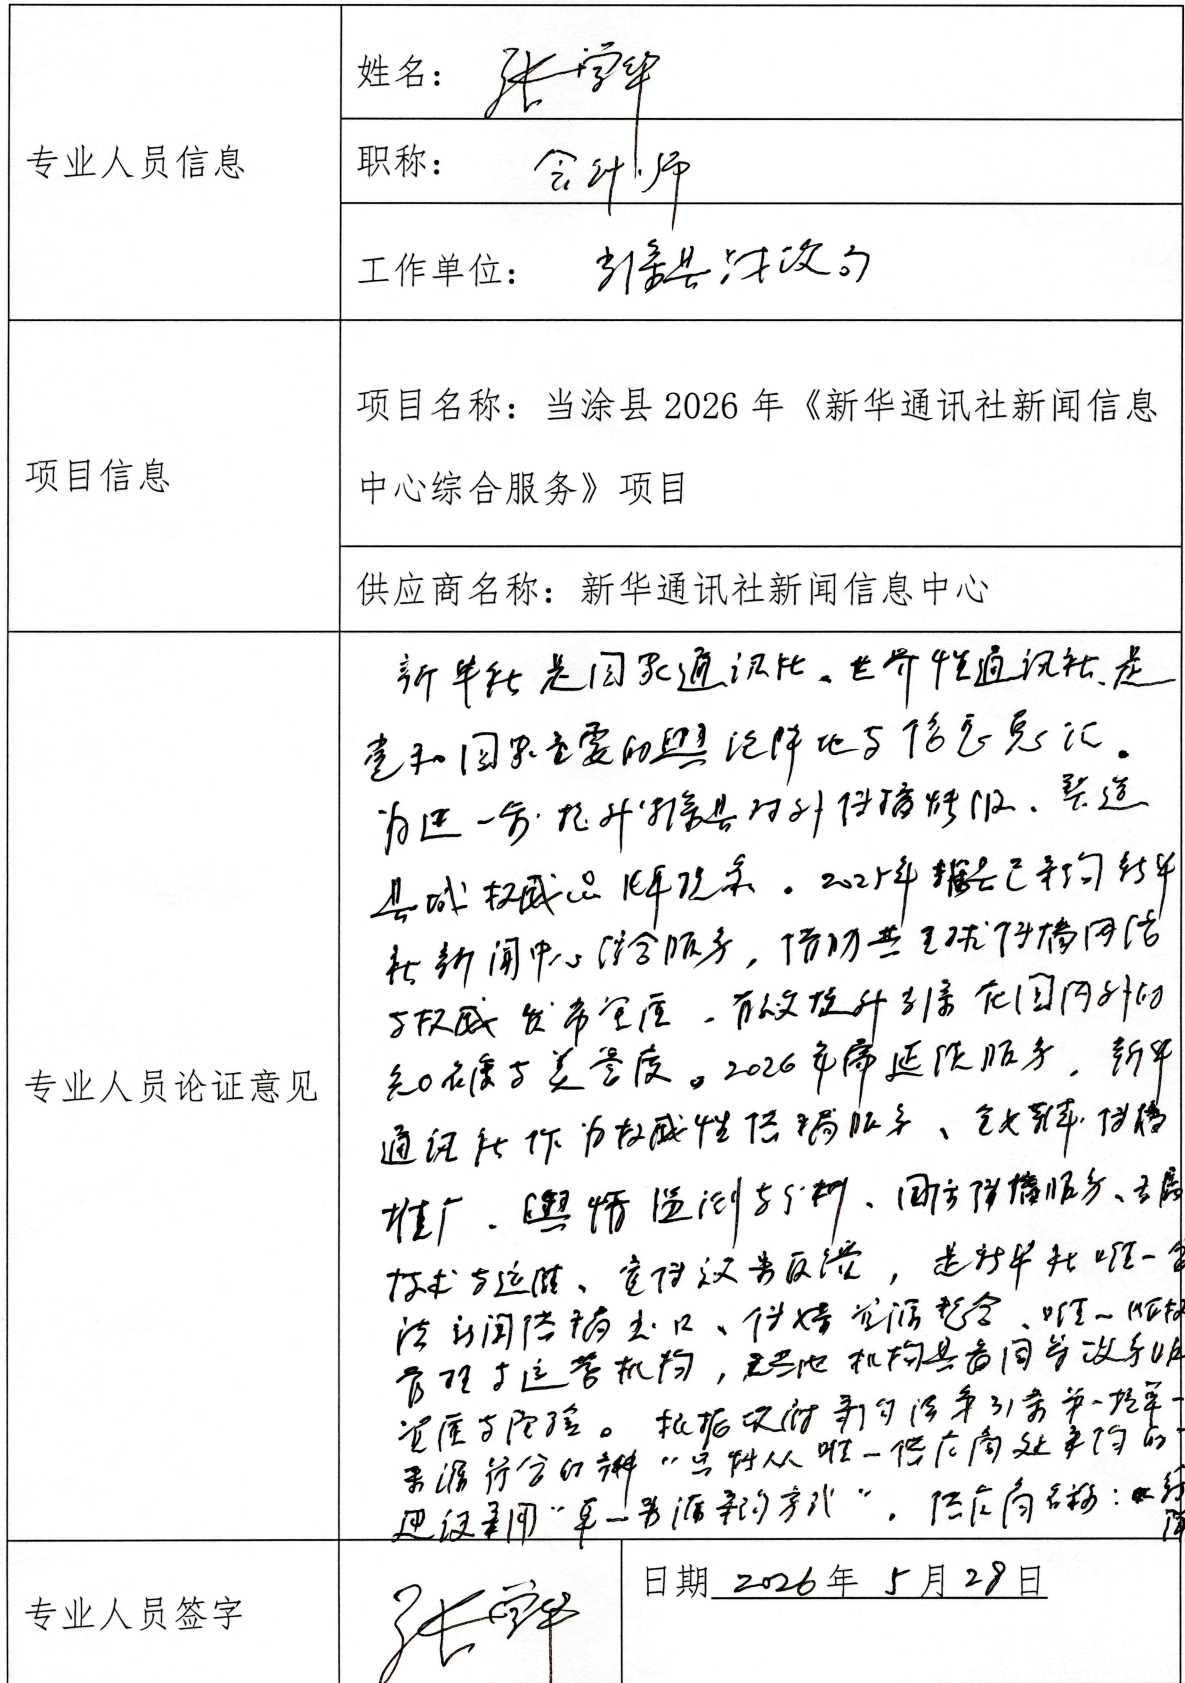 专业人员信息
姓名：张学华
职称：会计师
工作单位：当涂县财政局
项目信息
项目名称：当涂县 2026 年《新华通讯社新闻信息
中心综合服务》项目
供应商名称：新华通讯社新闻信息中心
专业人员论证意见
新华社是国家通讯社、世界性通讯社、是
党和国家重要的舆论阵地与信息总汇。
为进一步提升当涂县对外传播 、
县域权威 。2025年 县已采购新华
社新闻中心综合服务，借助其全球传播网络
与权威发布 ，有效提升当涂在国内外的
知名度与美誉度。2026年需延续服务，新华
通讯社作为权威性供稿服务、 传播
推广、舆情监测与分析、 服务、
技术与运维、宣传效果反馈，是新华社唯一合
法新闻供稿出口、 资源整合、唯一
管理与运营机构，无其他机构具备同等服务
资质与 。根据政府采购法第31条第一项单一
来源符合的 “只能从唯一供应商处采购的”
建议采用“单一来源采购方式”。供应商名称：
专业人员签字
张学华
日期 2026年 5月28日